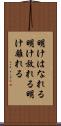 明けはなれる
明け放れる明
け離れる